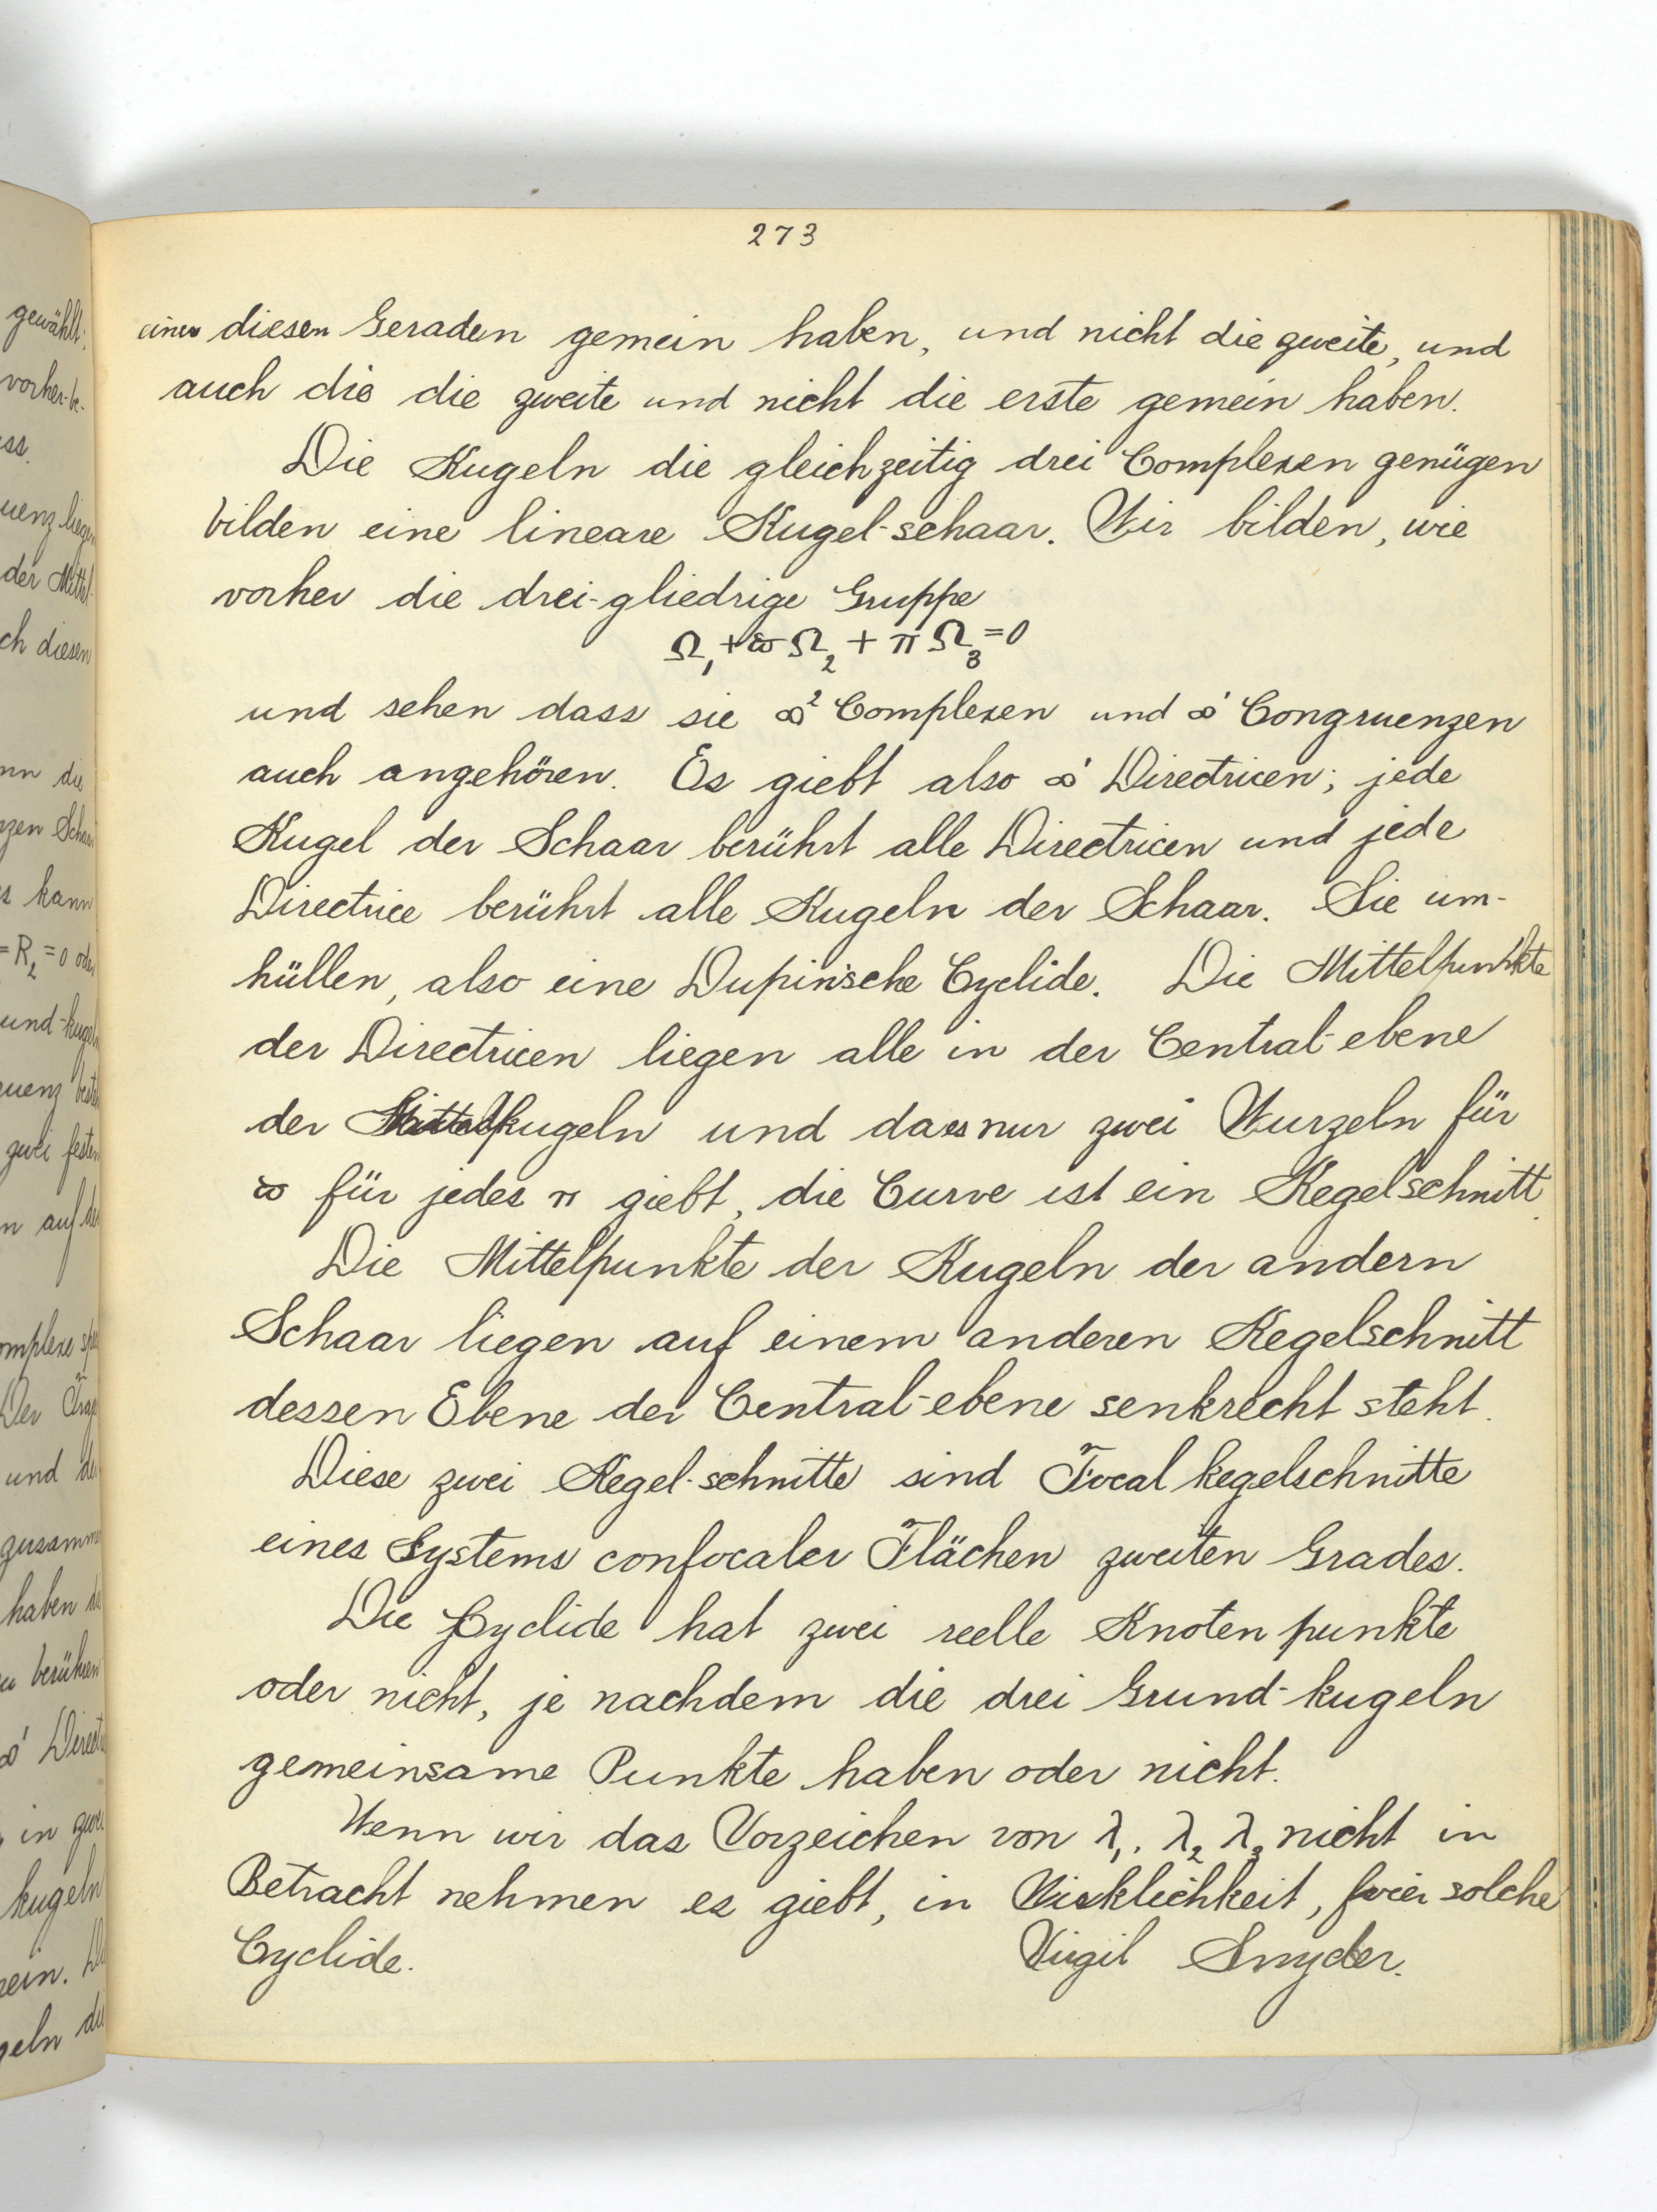 273
einer diesen Geraden gemein haben, und nicht die zweite, und
auch die die zweite und nicht die erste gemein haben.
Die Kugeln die gleichzeitig drei Complexen genügen
bilden eine lineare Kugel-schaar. Wir bilden, wie
vorher die drei-gliedrige Gruppe
Ω₁ + ϖ Ω₂ + π Ω₃ = 0
und sehen dass sie ∞² Complexen und ∞' Congruenzen
auch angehören. Es giebt also ∞' Directricen; jede
Kugel der Schaar berührt alle Directricen und jede
Directrice berührt alle Kugeln der Schaar. Sie um-
hüllen, also eine Dupin'sche Cyclide. Die Mittelpunkte
der Directricen liegen alle in der Central-ebene
der kugeln und da es nur zwei Wurzeln für
ϖ für jedes π giebt, die Curve ist ein Kegelschnitt.
Die Mittelpunkte der Kugeln der andern
Schaar liegen auf einem anderen Kegelschnitt
dessen Ebene der Central-ebene senkrecht steht.
Diese zwei Kegel-schnitte sind Focal kegelschnitte
eines Systems confocaler Flächen zweiten Grades.
Die Cyclide hat zwei reelle Knoten punkte
oder nicht, je nachdem die drei Grund-kugeln
gemeinsame Punkte haben oder nicht.
Wenn wir das Vorzeichen von λ₁. λ₂ λ₃ nicht in
Betracht nehmen es giebt, in Wirklichkeit, vier solche
Cyclide. Virgil Snyder.
gewählt;
vorher-be-
ss.
uenz liegen
der Mittel-
ch diesen
= R₂ = 0 oder
zwei festen
und
haben
berühren
∞' Direct
in zwei
kugeln